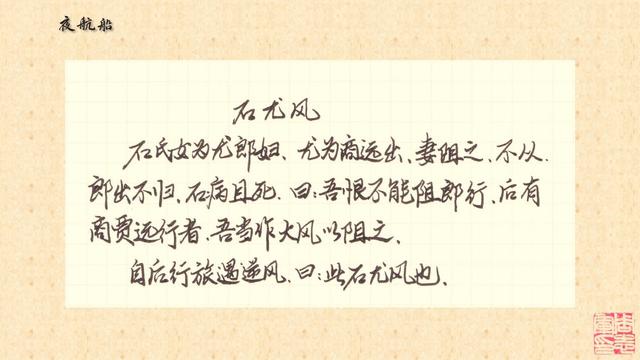 夜航船
石尤风
石氏女为尤郎妇、尤为商远出、妻阻之、不从.
郎出不归、石病且死.曰:吾恨不能阻郎行、后有
商贾远行者、吾当作大风以阻之、
自后行旅遇逆风.曰:此石尤风也.